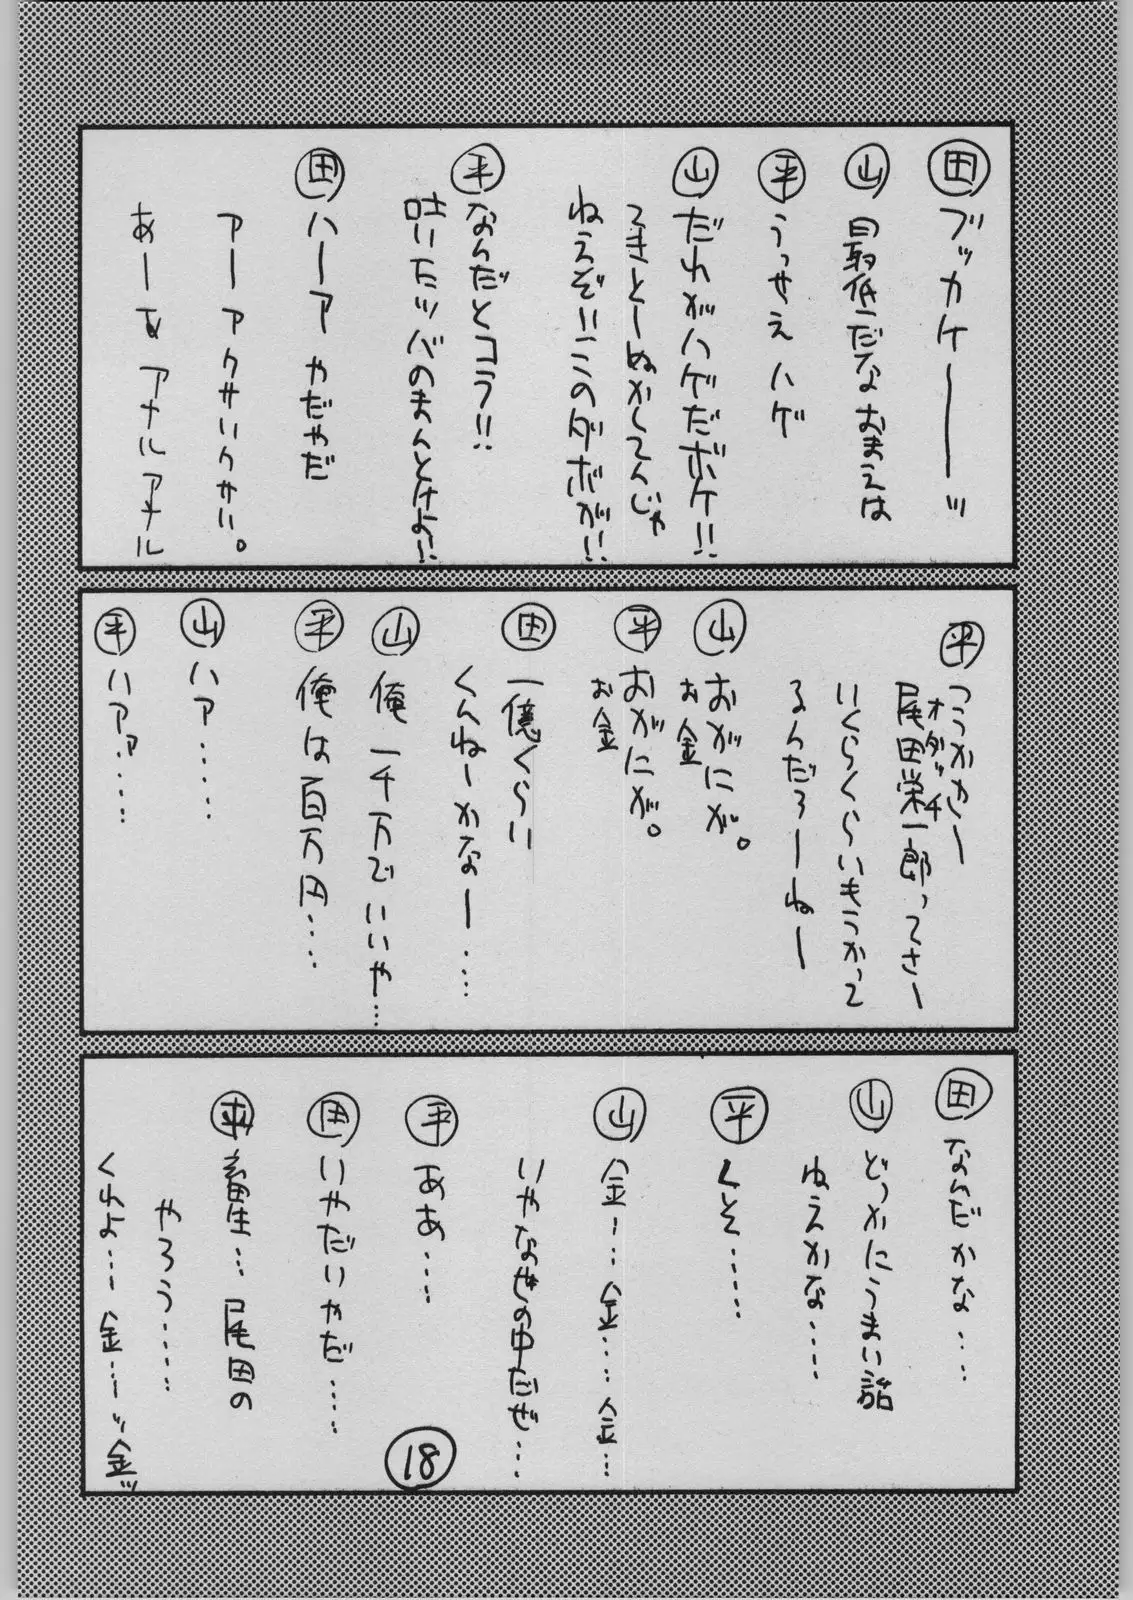 田 ブッカケーーーッ
山 最低だなおまえは
平 うっせえハゲ
山 だれがハゲだボケ!!
てきとーぬかしてんじゃ
ねえぞ!!このダボが!!
平 なんだとコラ!!
吐いたツバのまんとけよ!!
田 ハーア やだやだ
アーア クサいクサい。
あーあ アナルアナル
平 つうかさー
尾田栄一郎ってさー
オダッチ
いくらくらいもうかって
るんだろーねー
山 おがにが。
お金
平 おがにが。
お金
田 一億くらい
くんねーかなー‥‥
山 俺一千万でいいや…
平 俺は百万円‥‥
山 ハァ‥‥
平 ハァァ‥‥
田 なんだかな‥‥
山 どっかにうまい話
ねえかな‥‥
平 くそ‥‥‥
山 金‥‥金‥‥金…
いやなぜの中だぜ…
平 ああ‥‥
田 いやだいやだ‥‥
平 畜生… 尾田の
やろう‥‥‥
くそよ‥‥金…ーッ金ッ
18